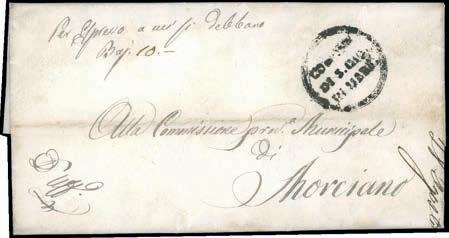 Per Espresso a cui si debbano
Baj. 10.—
DI S. GIO
Alla Commissione prov.ª Municipale
di
Morciano